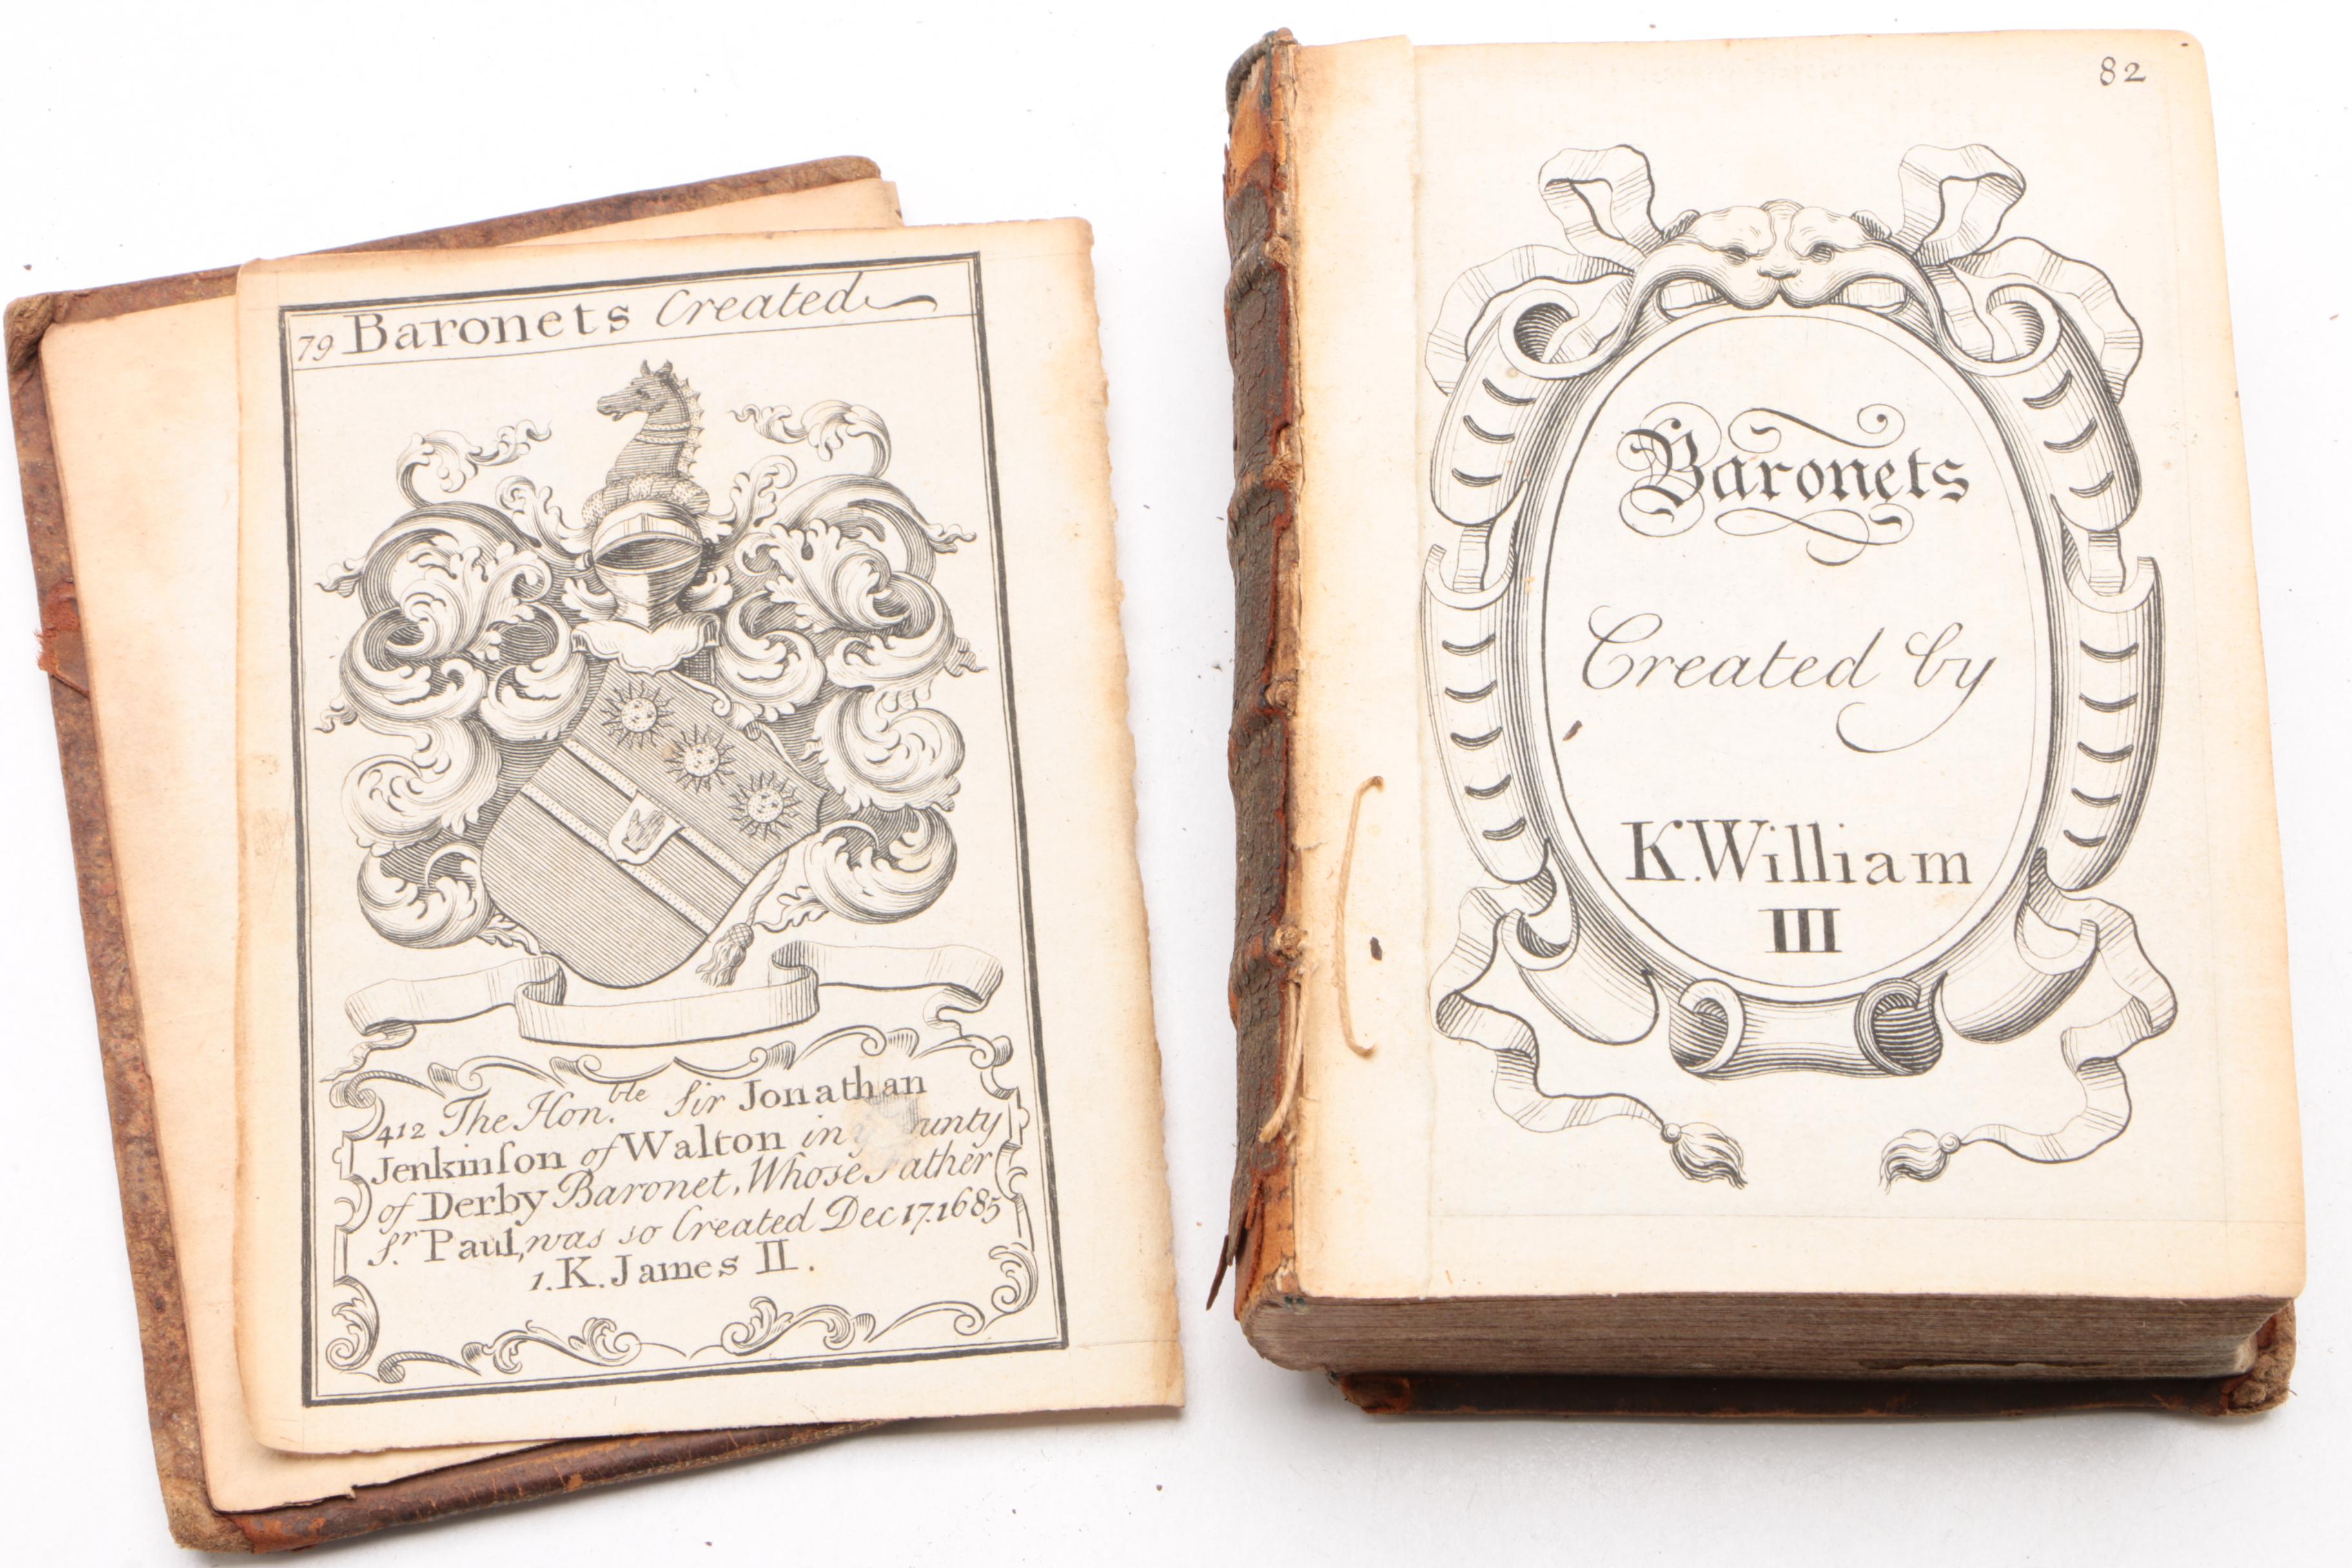 79 Baronets Created
412 The Hon.ble Sir Jonathan
Jenkinſon of Walton in
of Derby Baronet, Whose Father
Sr. Paul, was so Created Dec 17. 1685
1. K. James II.
82
Baronets
Created by
K. William
III